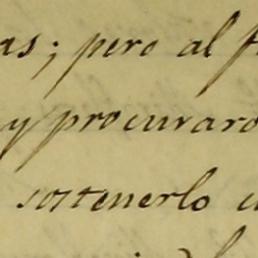 as; pero al f
y procuraro
sostenerlo